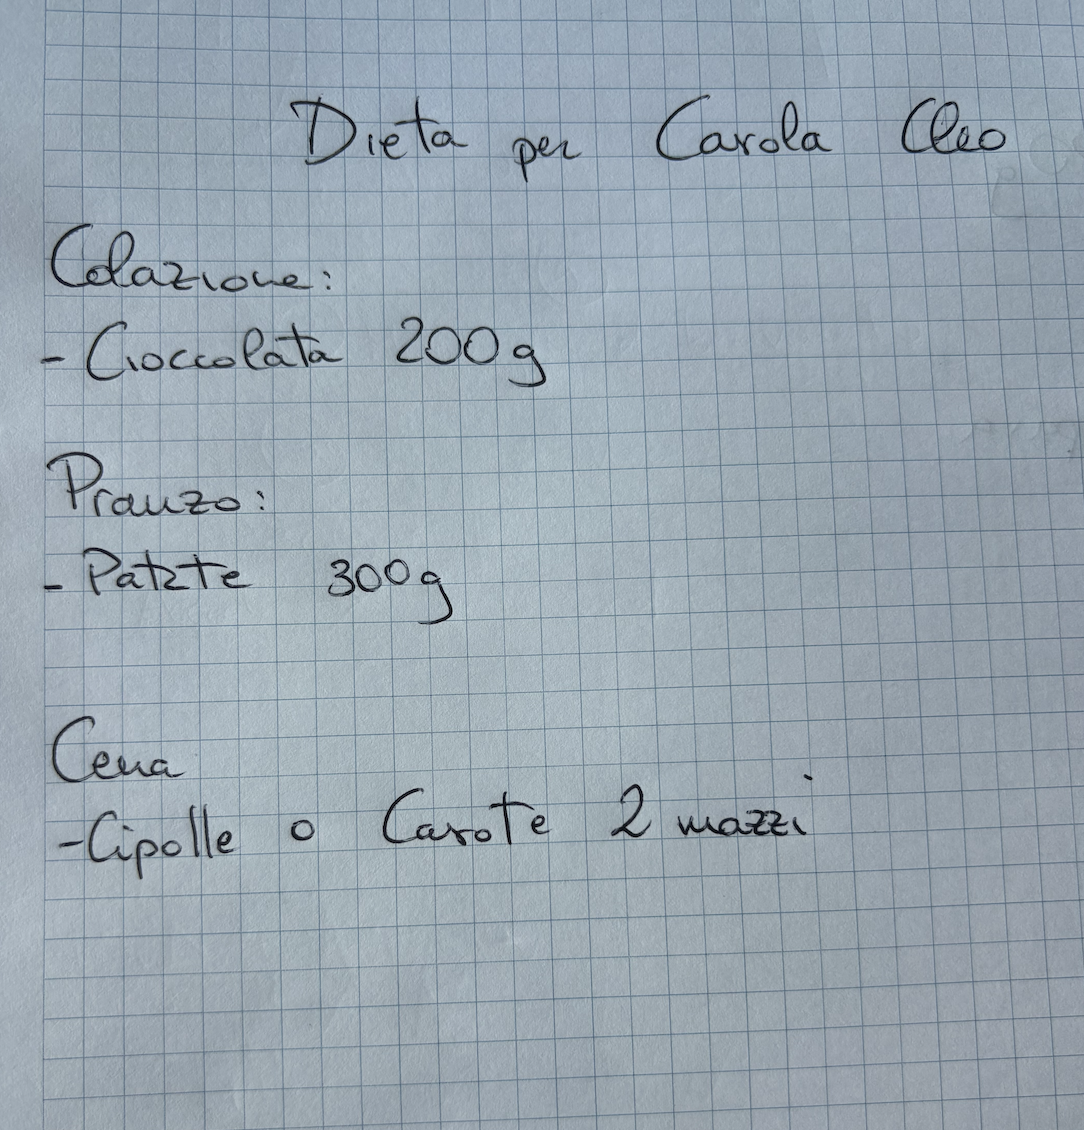 Dieta per Carola Cleo
Colazione:
- Cioccolata 200g
Pranzo:
- Patate 300g
Cena
- Cipolle o Carote 2 mazzi